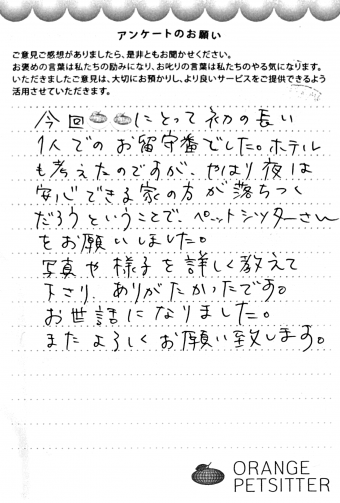 アンケートのお願い
ご意見ご感想がありましたら、是非ともお聞かせください。
お褒めの言葉は私たちの励みになり、お叱りの言葉は私たちのやる気になります。
いただきましたご意見は、大切にお預かりし、より良いサービスをご提供できるよう
活用させていただきます。
今回にとって初の長い
1人でのお留守番でした。ホテル
も考えたのですが、やはり夜は
安心できる家の方が落ちつく
だろうということで、ペットシッターさん
をお願いしました。
写真や様子を詳しく教えて
下さり、ありがたかったです。
お世話になりました。
またよろしくお願い致します。
ORANGE
PETSITTER